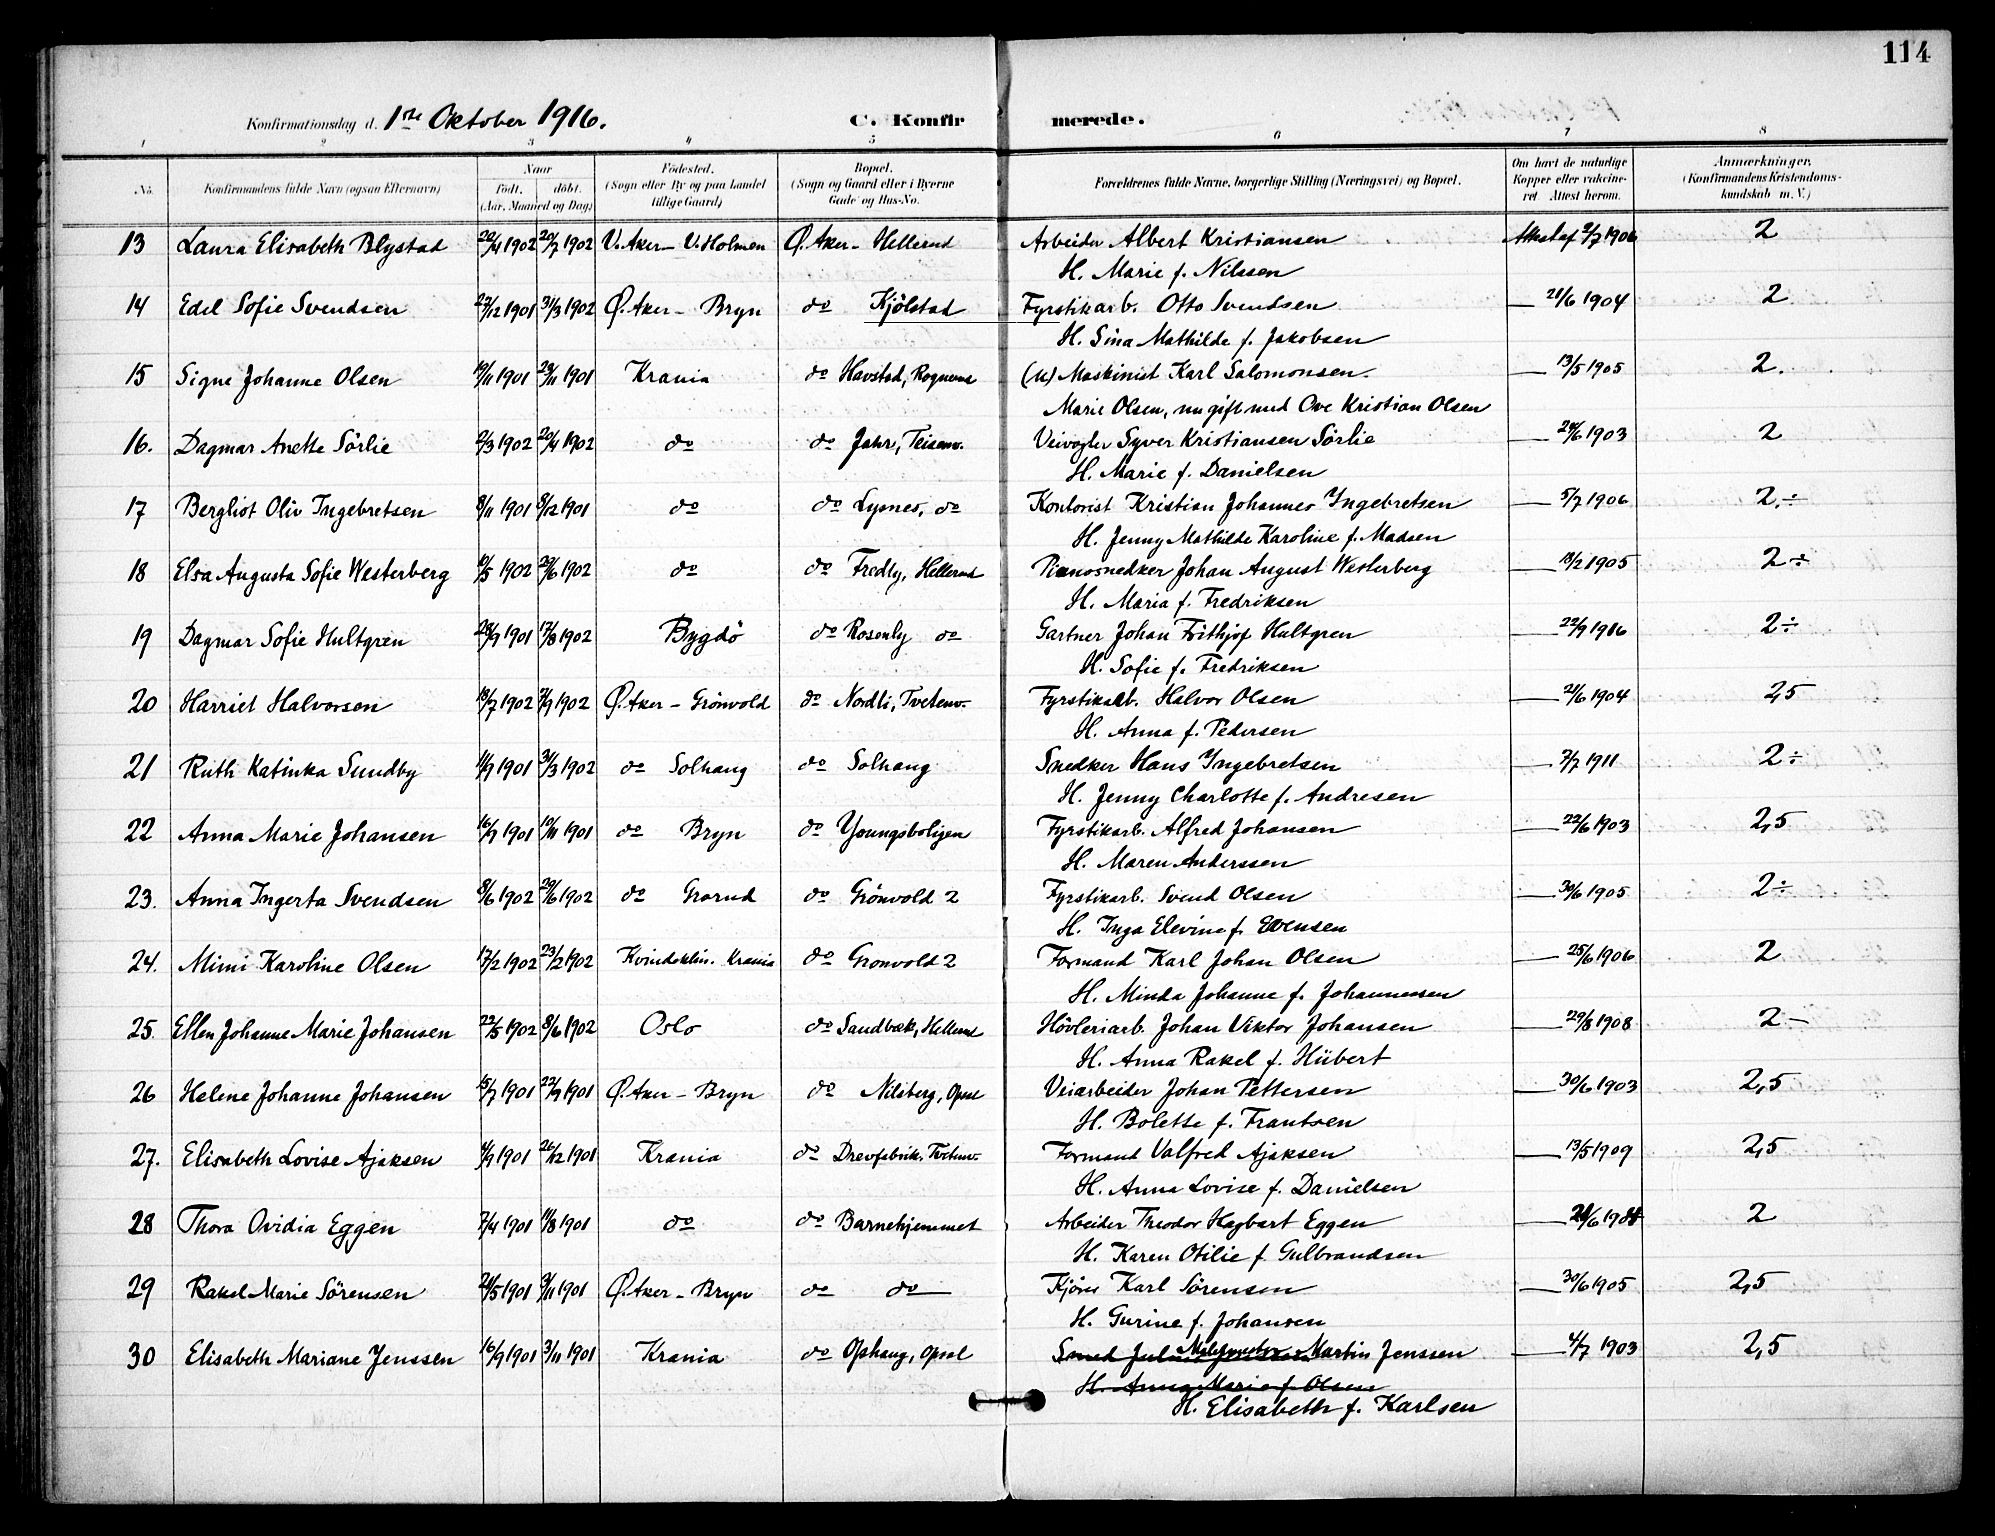 114
Konfirmationsdag d. 1ste Oktober 1916. C. Konfirmerede.
1 2 3 4 5 6 7 8
No. Konfirmandens fulde Navn (ogsaa Efternavn) Naar født. døbt. (Aar, Maaned og Dag) Fødested. (Sogn eller By og paa Landet tillige Gaard) Bopæl. (Sogn og Gaard eller i Byerne Gade og Hus-No. Forældrenes fulde Navne, borgerlige Stilling (Næringsvei) og Bopæl. Om havt de naturlige Kopper eller vaccineret Attest herom. Anmærkninger, (Konfirmandens Kristendomskundskab m. V.)
13 Laura Elisabeth Blystad 22/4 1902 20/7 1902 V. Aker - V. Holmen Ø. Aker - Hellerud Arbeider Albert Kristiansen Attest af 2/7 1906 2
H. Marie f. Nilssen
14 Edel Sofie Svendsen 27/12 1901 31/3 1902 Ø. Aker - Bryn do Kjölstad Fyrstikarb. Otto Svendsen — 21/6 1904 2
H. Sina Mathilde f. Jakobsen
15 Signe Johanne Olsen 19/11 1901 23/11 1901 Krania do Havstad, Rognerud (U) Maskinist Karl Salomonsen. — 13/5 1905 2.
Marie Olsen, nu gift med Ove Kristian Olsen
16. Dagmar Anette Sörlie 2/3 1902 20/4 1902 do do Jahr, Teisenv. Veivogter Syver Kristiansen Sörlie — 24/6 1903 2
H. Marie f. Danielsen
17 Bergliot Oliv Ingebretsen 8/11 1901 8/12 1901 do do Lysnes, do Kontorist Kristian Johannes Ingebretsen — 5/7 1906 2.÷
H. Jenny Mathilde Karoline f. Madsen
18 Elsa Augusta Sofie Westerberg 10/5 1902 29/6 1902 do do Fredly, Hellerud Pianosnedker Johan August Westerberg — 13/2 1905 2÷
H. Maria f. Fredriksen
19 Dagmar Sofie Hultgren 28/9 1901 17/8 1902 Bygdö do Rosenly do Gartner Johan Frithjof Hultgren — 22/9 1916 2÷
H. Sofie f. Fredriksen
20 Harriet Halvorsen 13/7 1902 7/9 1902 Ø. Aker - Grönvold do Nordli, Tvetenv. Fyrstikarb. Halvor Olsen — 21/6 1904 2,5
H. Anna f. Pedersen
21 Ruth Katinka Sundby 11/9 1901 31/3 1902 do Solhaug do Solhaug Snedker Hans Ingebretsen — 7/7 1911 2÷
H. Jenny Charlotte f. Andresen
22 Anna Marie Johansen 16/9 1901 10/11 1901 do Bryn do Youngsboligen Fyrstikarb. Alfred Johansen — 22/6 1903 2,5
H. Maren Anderssen
23. Anna Ingerta Svendsen 8/6 1902 29/6 1902 do Grorud do Grönvold 2 Fyrstikarb. Svend Olsen — 30/6 1905 2÷
H. Inga Elevine f. Evensen
24. Mimi Karoline Olsen 17/2 1902 23/2 1902 Kvindeklin. Krania do Gronvold 2 Formand Karl Johan Olsen — 25/6 1906 2
H. Minda Johanne f. Johannessen
25. Ellen Johanne Marie Johansen 22/5 1902 8/6 1902 Oslo do Sandbæk, Hellerud Hövleriarb. Johan Viktor Johansen — 29/8 1908 2 -
H. Anna Rakel f. Hübert
26 Helene Johanne Johansen 15/7 1901 22/9 1901 Ø. Aker - Bryn do Nilsberg, Opsal Veiarbeider Johan Pettersen — 30/6 1903 2,5
H. Bolette f. Frantsen
27. Elisabeth Lovise Ajaksen 4/9 1901 26/12 1901 Krania do Drevfabrik. Tvetenv. Formand Valfred Ajaksen — 13/5 1909 2,5
H. Anna Lovise f. Danielsen
28 Thora Ovidia Eggen 7/4 1901 11/8 1901 do do Barnehjemmet Arbeider Theodor Hagbart Eggen 2
H. Karen Otilie f. Gulbrandsen
29 Rakel Marie Sörensen 24/5 1901 3/11 1901 Ø. Aker - Bryn do do Kjörer Karl Sörensen — 30/6 1905 2,5
H. Gurine f. Johansen
30 Elisabeth Mariane Jenssen 16/9 1901 3/11 1901 Krania do Ophaug, Opsal Smed Malermester Martin Jenssen — 4/7 1903 2,5
H. Anna Marie f. Olsen
H. Elisabeth f. Karlsen